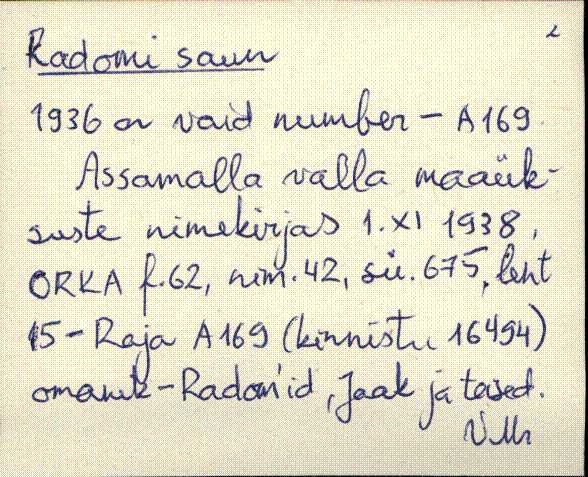 2
Radomi saun
1936 on vaid number - A169.
Assamalla valla maaük-
suste nimekirjas 1.XI 1938,
ORKA f.62, nim.42, sü.675, leht
15 - Raja A169 (kinnistu 16494)
omanik - Radom'id, Jaak ja teised.